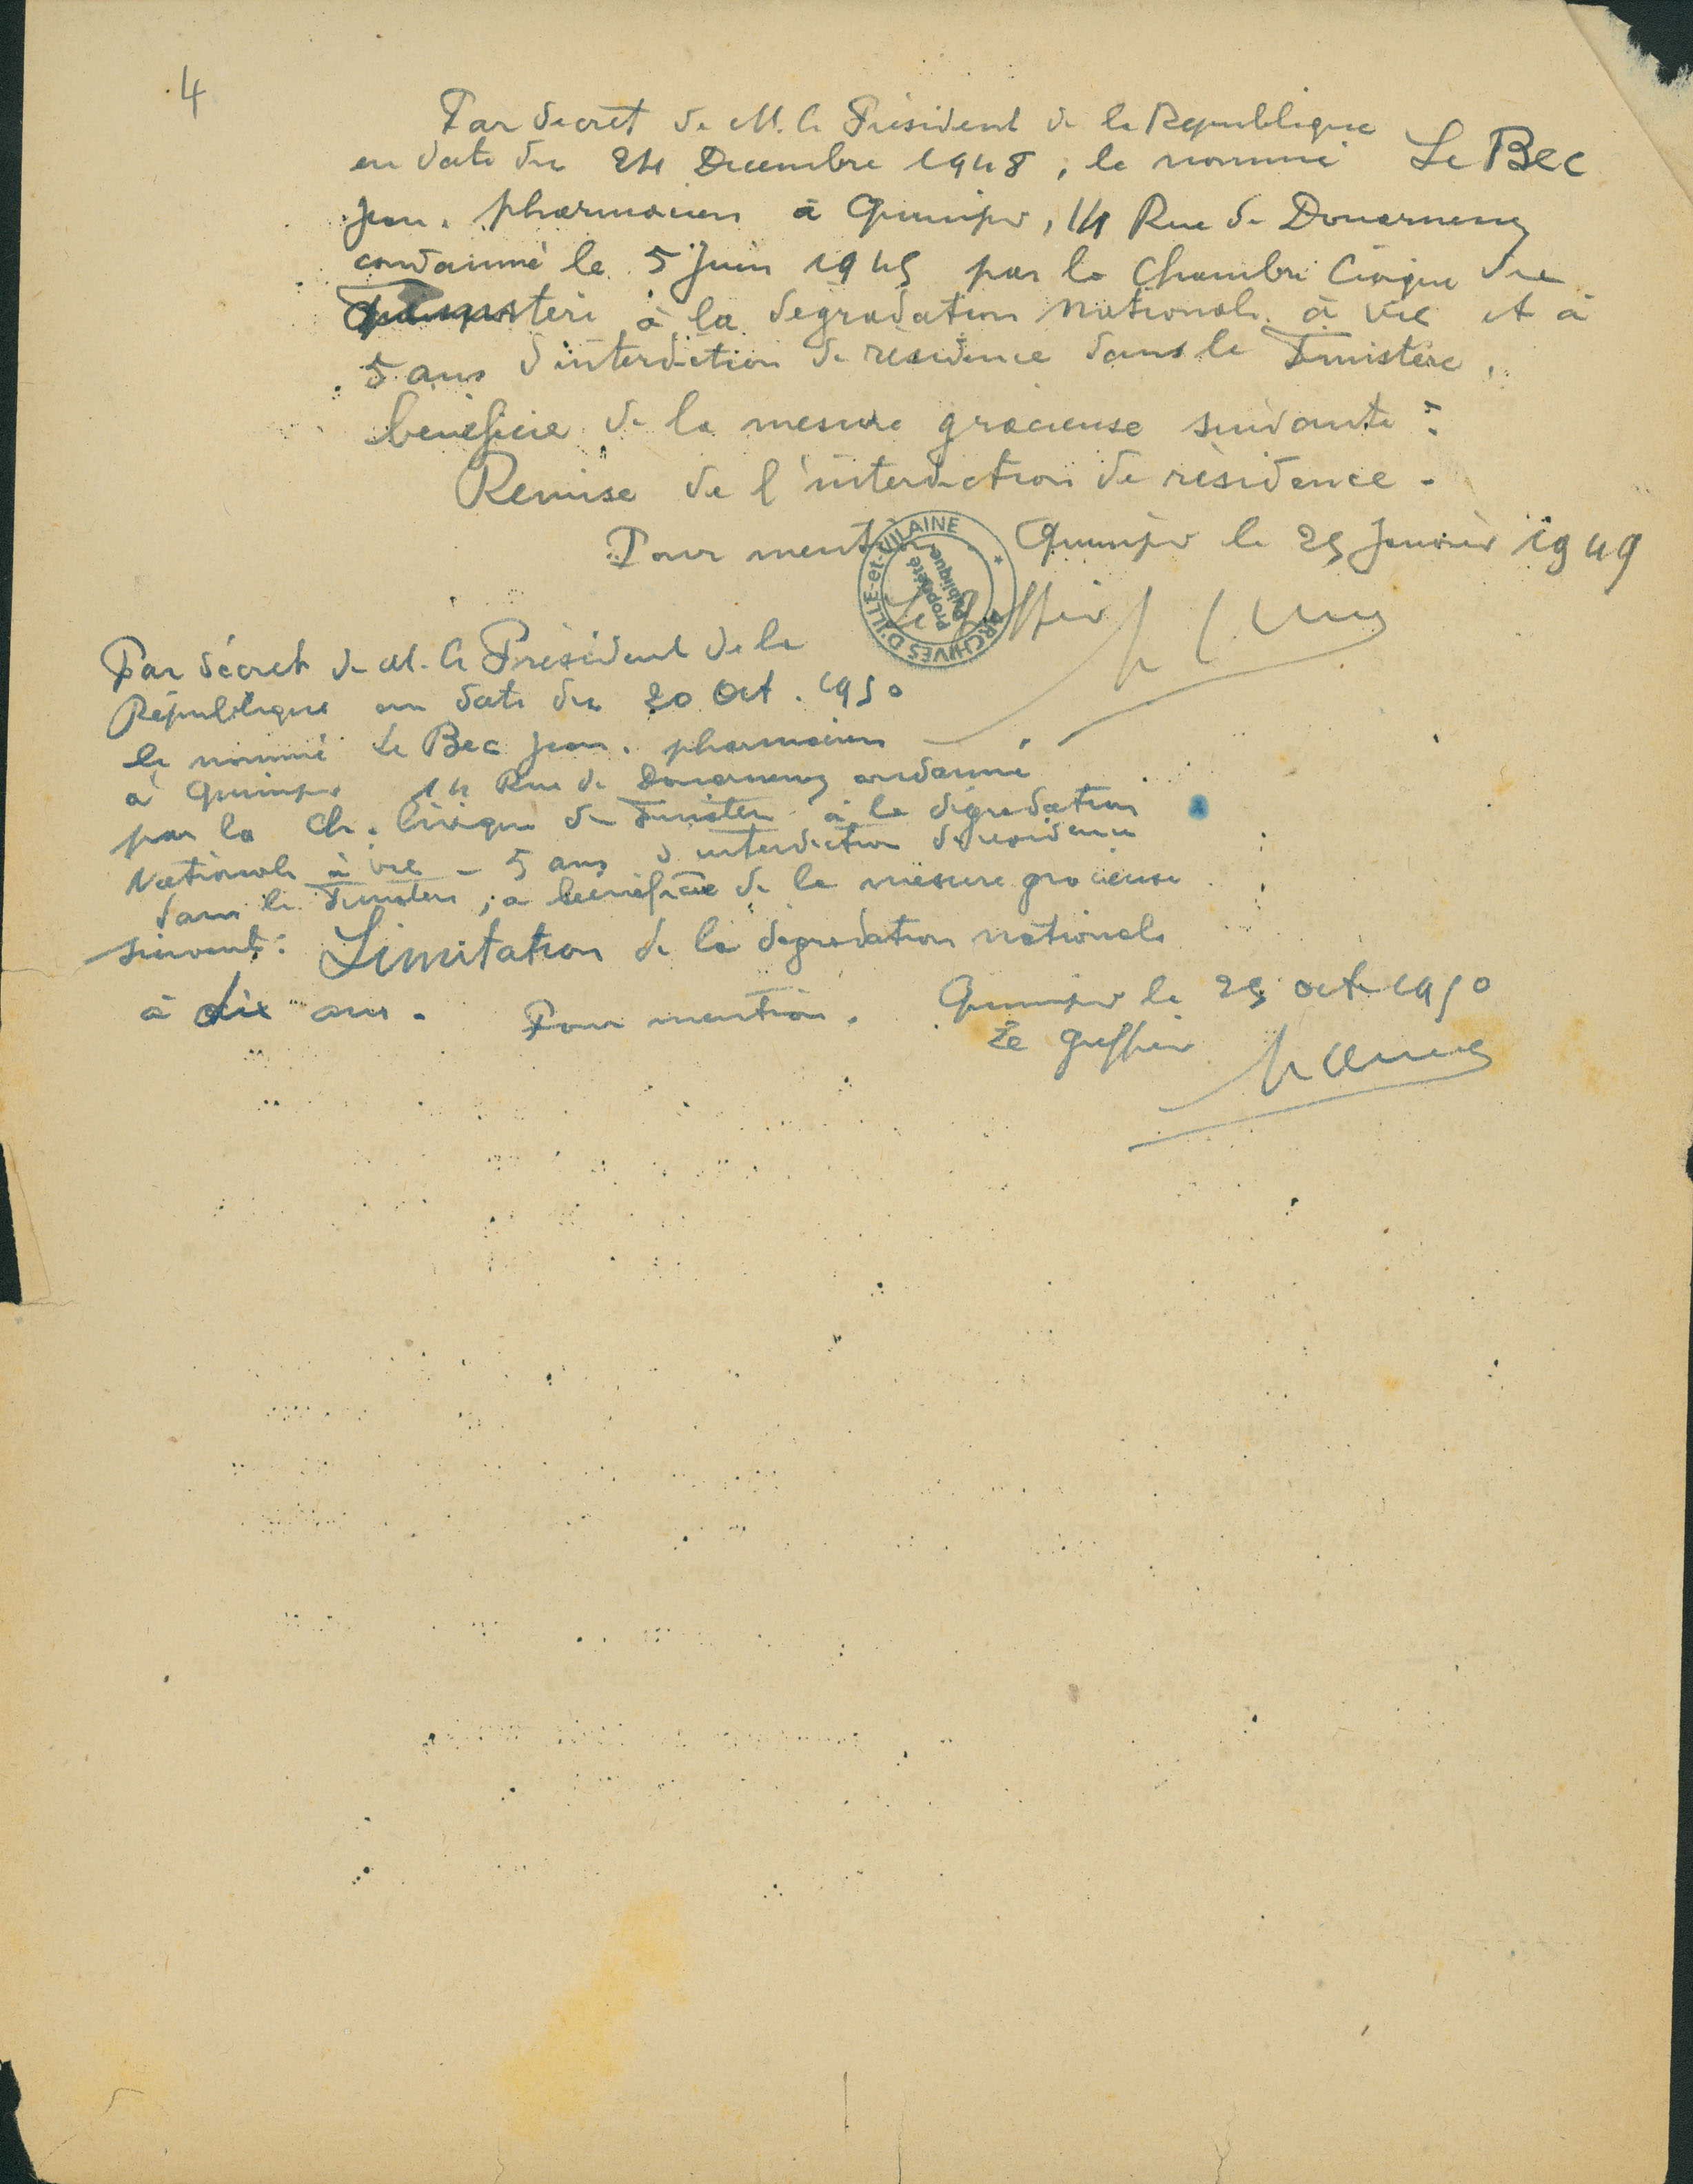 4
Par decret de M. le Président de la République
en date du 24 Decembre 1948, le nommé Le Bec
Jean, pharmacien à Quimper, 14 Rue de Douarnenez
condamné le 5 Juin 1945 par la Chambre Civique du
Finistère à la degradation Nationale à vie et à
5 ans d'interdiction de residence dans le Finistère,
bénéficie de la mesure gracieuse suivante :
Remise de l'interdiction de résidence -
Pour mention. Quimper le 25 Janvier 1949
Le Greffier
ARCHIVES D'ILLE-et-VILAINE *
Propriété
Publique
Par décret de M. le Président de la
République en date du 20 Oct. 1950
le nommé Le Bec Jean, pharmacien
à Quimper 14 Rue de Douarnenez condamné
par la Ch. Civique du Finistère à la dégradation
Nationale à vie - 5 ans d'interdiction de residence
dans le Finistère, a bénéficié de la mesure gracieuse
suivante : Limitation de la dégradation nationale
à dix ans. Pour mention. Quimper le 25 oct 1950
Le Greffier